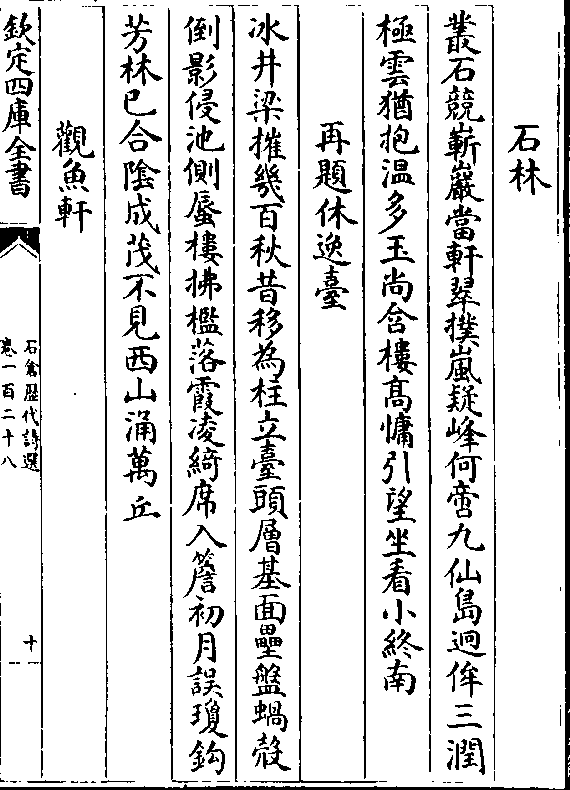 石林
叢石競嶄巖當軒翠撲嵐疑峰何啻九仙島迥侔三潤
極雲猶抱温多玉尚含樓髙慵引望坐看小終南
再題休逸臺
冰井梁摧幾百秋昔移為柱立臺頭層基面壘盤蝸殻
倒影侵池側蜃樓拂檻落霞凌綺席入簷初月誤瓊鈎
芳林已合陰成茂不見西山涌萬丘
觀魚軒
欽定四庫全書
石倉歴代詩選
卷一百二十八
十